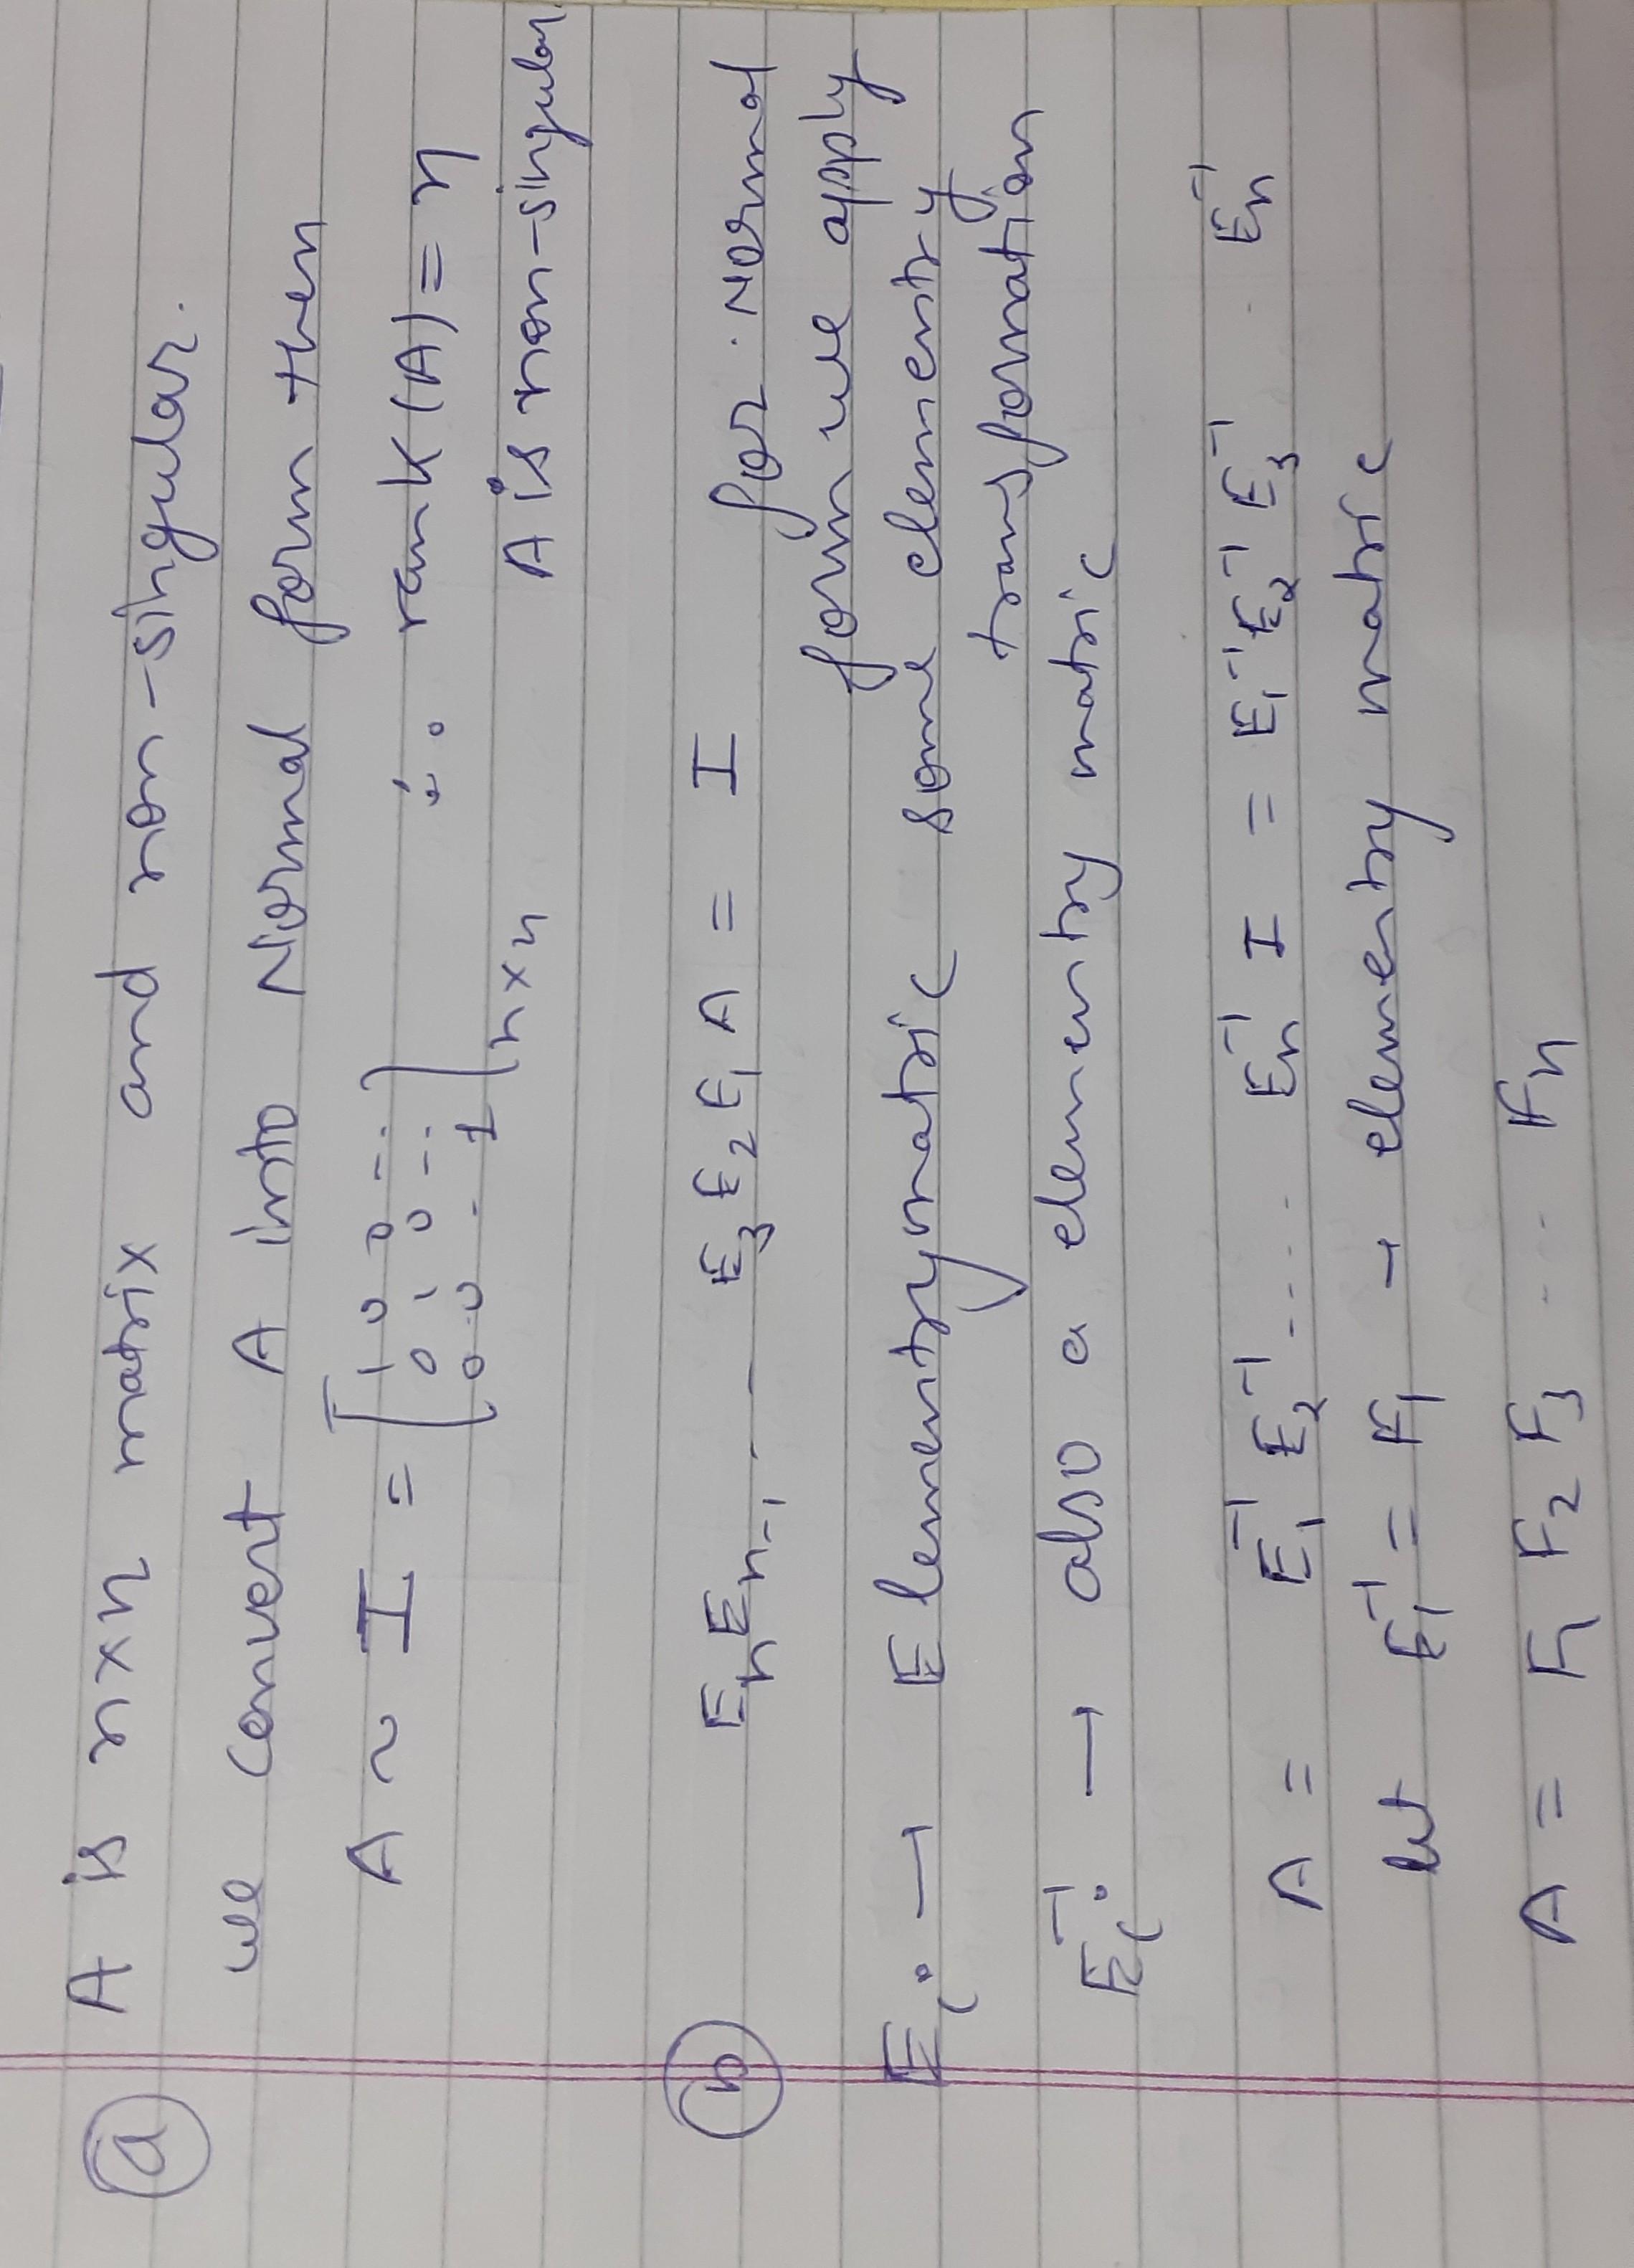 (a) A is n×n matrix and non-singular.
we convert A into Normal form then
A ~ I = [1 0 0 -..
0 1 0 -..
0 0 . 1] n×n ∵ rank(A) = n
A is non-singular
(b) EnEn-1 . — E3E2E1A = I for. Normal
form we apply
Ei → Elementrymatric some elementry
transformation
Ei⁻¹ → also a elementry matric
A = E1⁻¹ E2⁻¹.... En⁻¹ I = E1⁻¹E2⁻¹E3⁻¹ . En⁻¹
let E1⁻¹ = F1 → elementry matric
A = F1 F2 F3 ... Fn